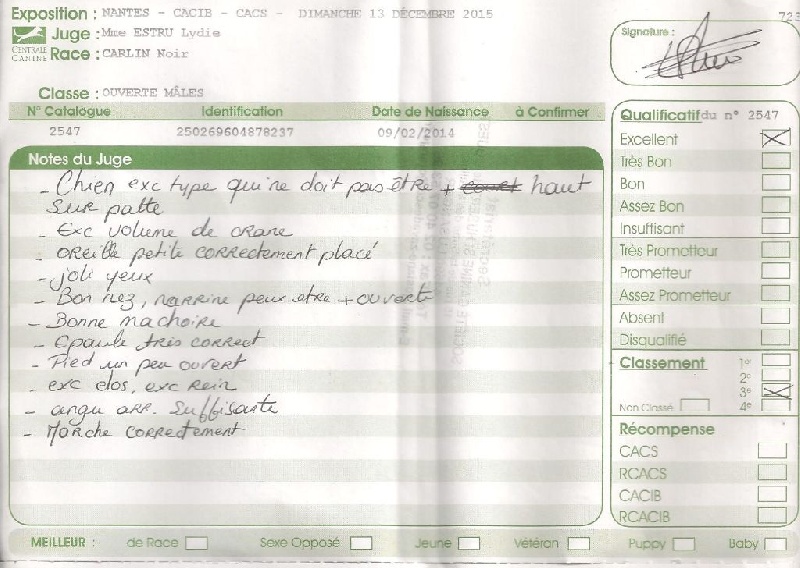 Exposition : NANTES - CACIB - CACS - DIMANCHE 13 DÉCEMBRE 2015
723
CENTRALE CANINE
Juge : Mme ESTRU Lydie
Race : CARLIN Noir
Signature :
Classe : OUVERTE MÂLES
N° Catalogue Identification Date de Naissance à Confirmer
2547 250269604878237 09/02/2014
Notes du Juge
- Chien exc type qui ne doit pas être + haut
sur patte
- Exc volume de crane
- oreille petite correctement placé
- joli yeux
- Bon nez, narrine peux etre + ouverte
- Bonne machoire
- Epaule très correct
- Pied un peu ouvert
- exc dos, exc rein
- angu arr. suffisante
- Marche correctement
Qualificatif du n° 2547
Excellent
Très Bon
Bon
Assez Bon
Insuffisant
Très Prometteur
Prometteur
Assez Prometteur
Absent
Disqualifié
Classement 1e
2e
3e
Non Classé 4e
Récompense
CACS
RCACS
CACIB
RCACIB
MEILLEUR : de Race Sexe Opposé Jeune Vétéran Puppy Baby